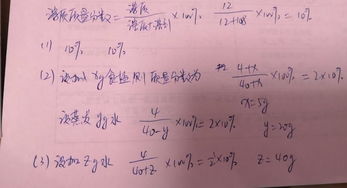 溶质质量分数 = 溶质/溶质+溶剂 ×100% 12/12+108 ×100% = 10%
(1) 10% 10%
(2) 设加入 xg 食盐 则质量分数为 4+x/40+x ×100% = 2×10%
x=5g
设蒸发 yg 水 4/40-y ×100% = 2×10% y=20g
(3) 设加 zg 水 4/40+z ×100% = 1/2×10% z=40g